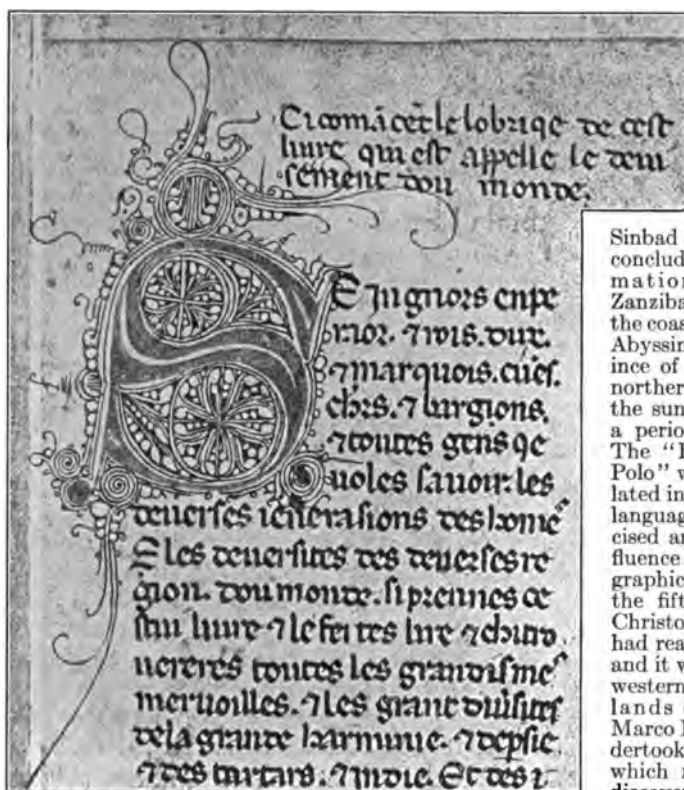 Ci comācēt le lobrique de cest
liure qui est appelle le deui
sement dou monde.
SEingnors enpe
raor. ⁊ rois. dux.
⁊ marquois. cuēs.
chrs. ⁊ bargions.
⁊ toutes gens qe
uoles sauoir. les
deuerses ienerasions des home
E les deuersites des deuerses re
gion. dou monde. si prennes ce
stui liure ⁊ le feites lire ⁊ chi tro
uererés toutes les grandismes
meruoilles. ⁊ les grant diuisites
de la grande harminie. ⁊ de psie.
⁊ des tartars. ⁊ indie. Et des
Sinbad
conclud
mation
Zanziba
the coas
Abyssin
ince of
northern
the sun
a perio
The "I
Polo" w
lated in
language
cised ar
fluence
graphic
the fift
Christo
had rea
and it w
western
lands
Marco
dertook
which
discover